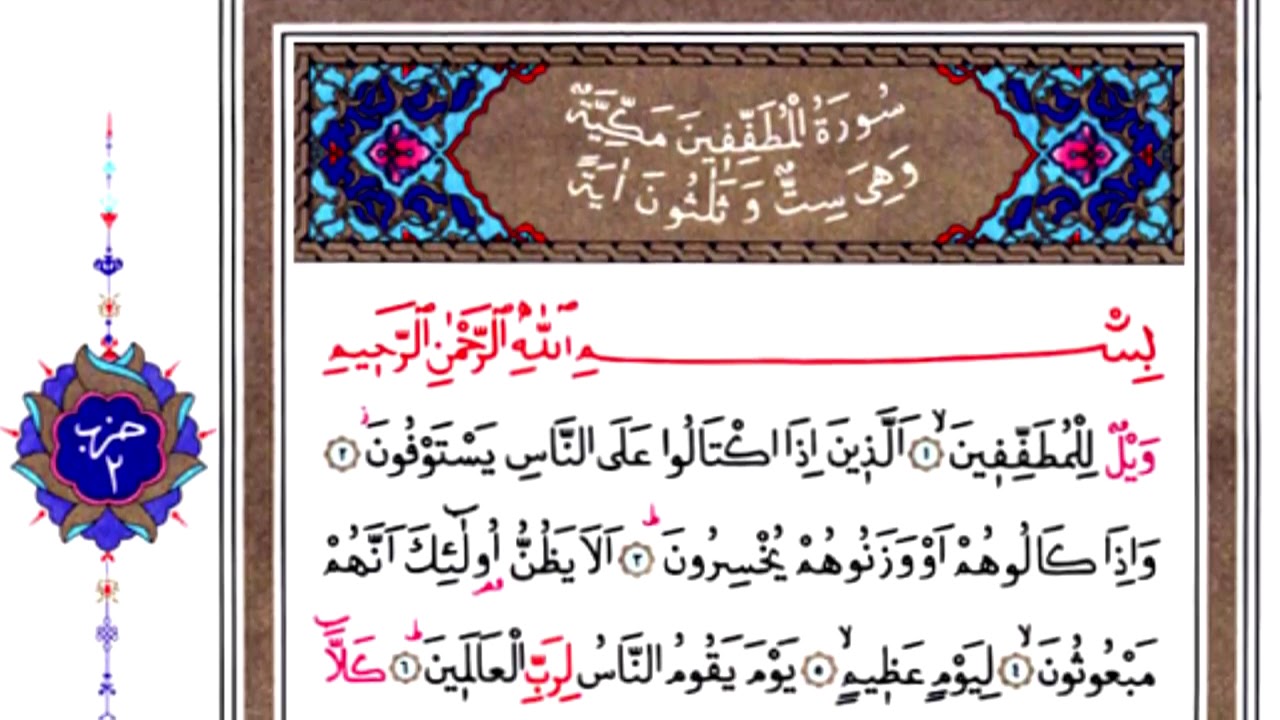 سُورَةُ الْمُطَفِّفٖينَ مَكِّيَّةٌ
وَهِيَ سِتٌّ وَ ثَلٰثُونَ اٰيَةً
بِسْمِ اللّٰهِ الرَّحْمٰنِ الرَّحٖيمِ
وَيْلٌ لِلْمُطَفِّفٖينَۙ ١ اَلَّذٖينَ اِذَا اكْتَالُوا عَلَى النَّاسِ يَسْتَوْفُونَؗ ٢
وَاِذَا كَالُوهُمْ اَوْ وَزَنُوهُمْ يُخْسِرُونَؕ ٣ اَلَا يَظُنُّ اُولٰٓئِكَ اَنَّهُمْ
مَبْعُوثُونَۙ ٤ لِيَوْمٍ عَظٖيمٍۙ ٥ يَوْمَ يَقُومُ النَّاسُ لِرَبِّ الْعَالَمٖينَؕ ٦ كَلَّٓا
حزب
٢